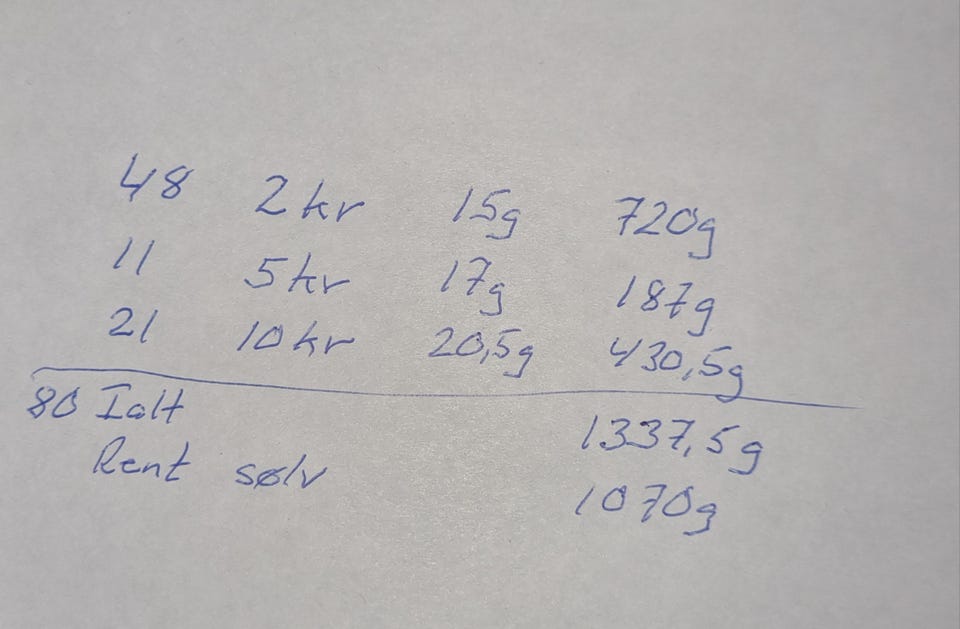 48 2 kr 15g 720g
11 5 kr 17g 187g
21 10 kr 20,5g 430,5g
80 Ialt 1337,5g
Rent sølv 1070g